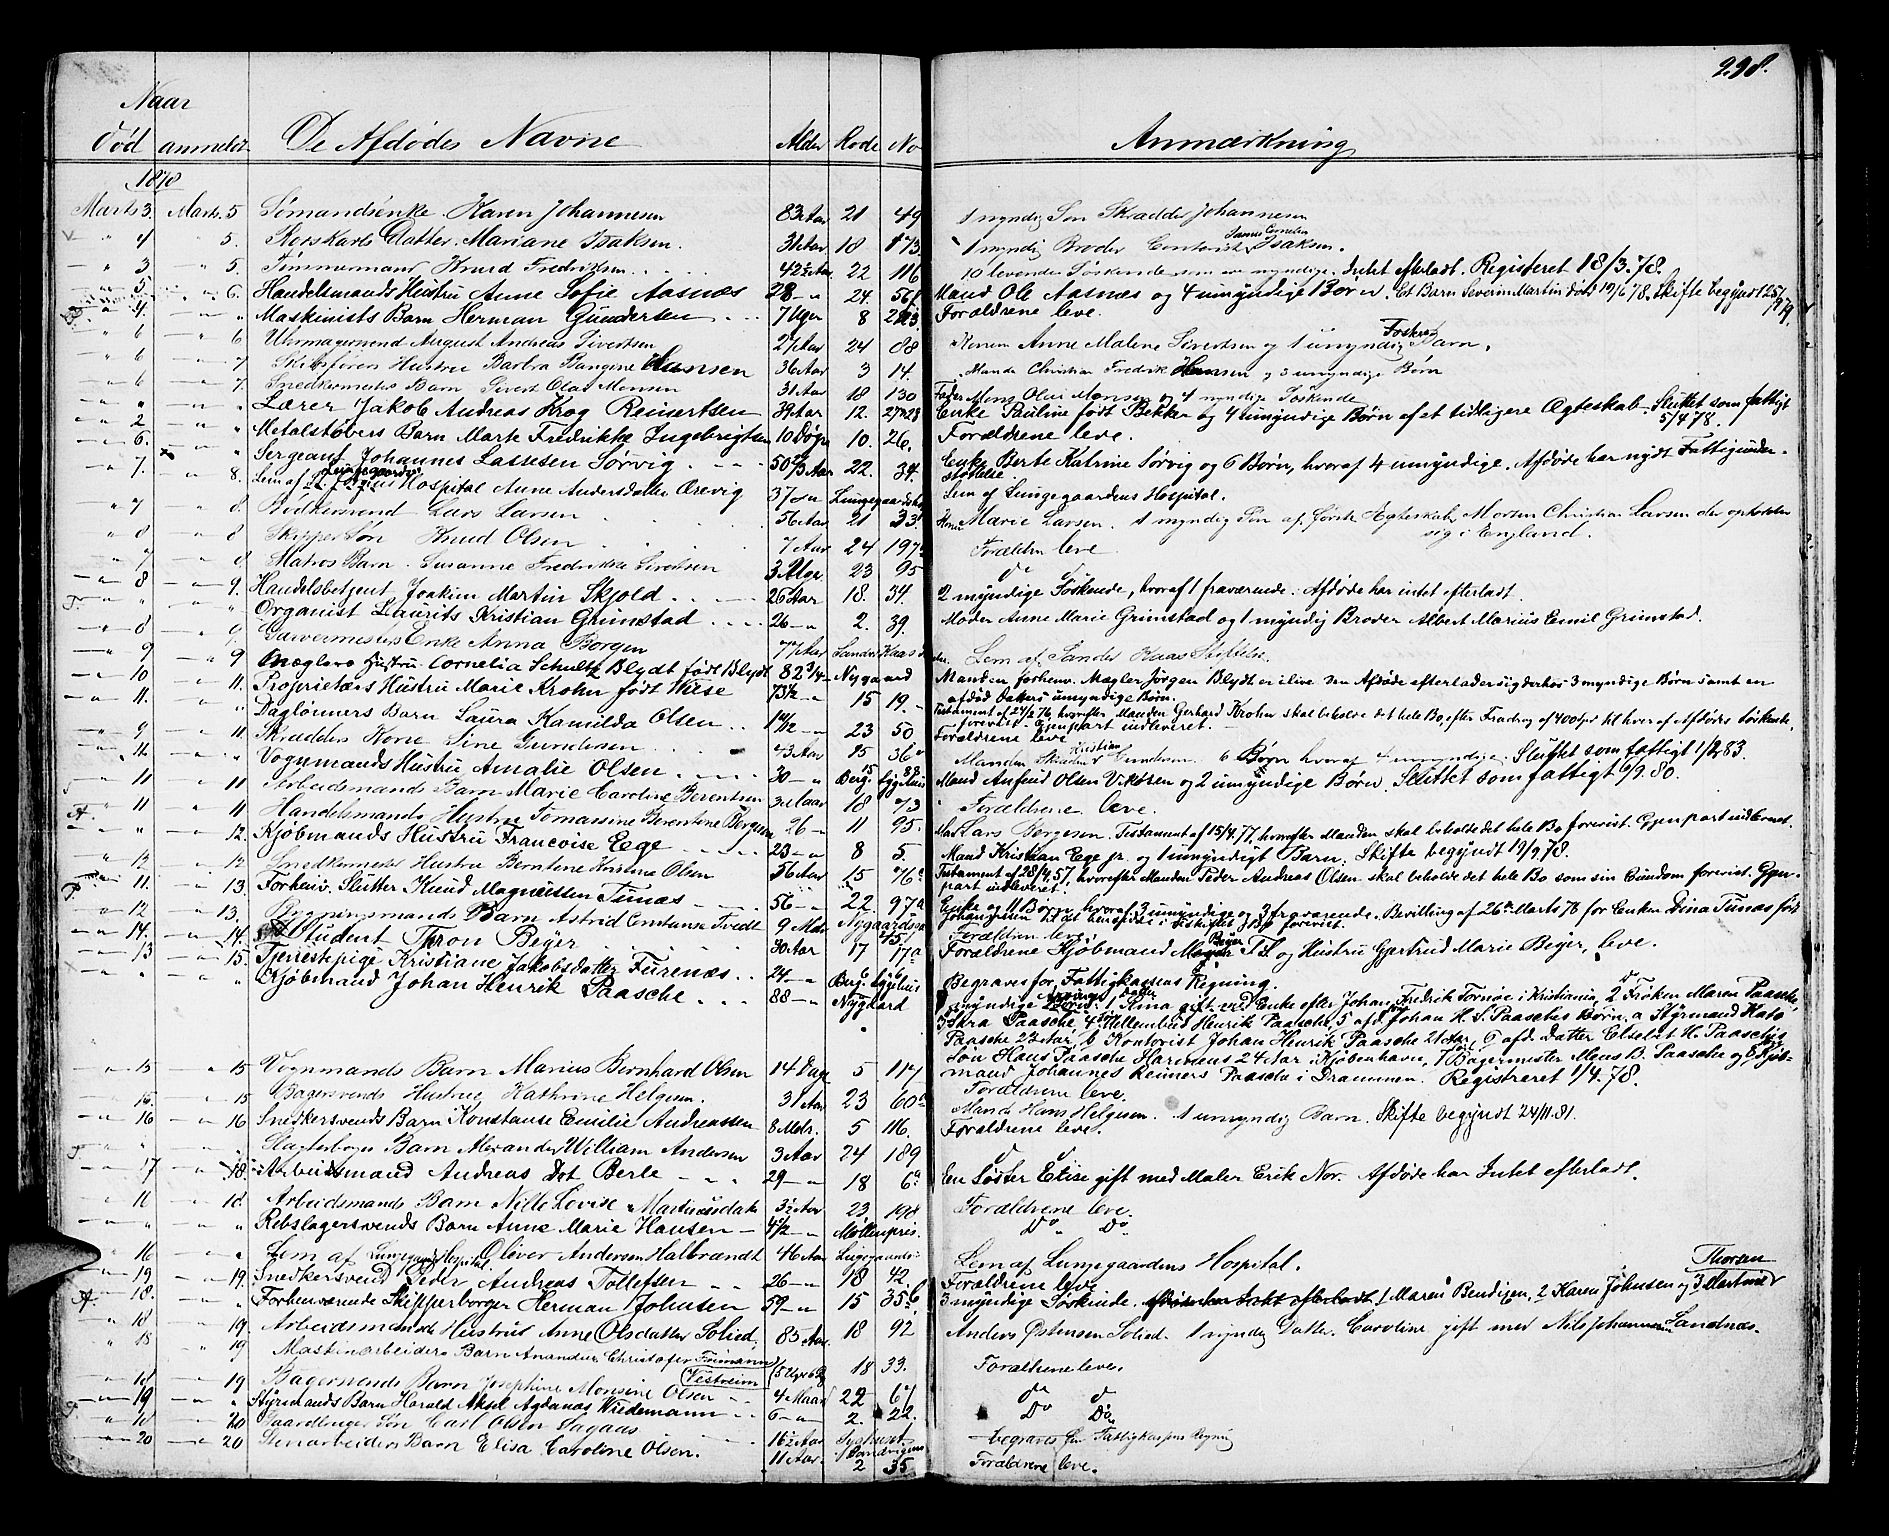 298.
Naar
Død anmeldt De Afdødes Navne Alder Rode No Anmærkning
1878
Marts 3. Marts 5 Sømandsenke Karen Johannesen 83 Aar 21 49 1 myndig Søn Skrædder Johannesen
" 4 " 5. Datter Mariane Isaksen. 31 Aar 18 173 1 myndig Broder Contorist Isaksen.
" 3 " 5. Tømmermand Knud Fredriksen 42 Aar 22 116 10 levende Søskende som ere myndige. Intet efterladt. Registreret 18/3.78.
" 5 " 6. Handelsmands Hustru Anne Sofie Aasnæs 28 - " 24. 56 Mand Ole Aasnæs og 4 umyndige Børn. Et Barn Severin Martin død 19/6 78. Skifte begyndt
" 4. " " Maskinists Barn Herman Gundersen 7 Uger 8 Forældrene leve.
" 6 " 6 Uhrmagersvend August Andreas Sivertsen 24 88 Anne Malene Sivertsen og 1 umyndig Foster Barn.
" 6 " 7 Skibsfører Hustru Barbra Hansen 36 Aar 3 14. Mand Christian Fredrik Hansen og 3 umyndige Børn
" 6 " 7. Snedkermester Barn Sivert Olai Monsen 3 Aar 18 130 Fader Mons Olai Monsen og 4 myndige Søskende
" " " " Lærer Jakob Andreas Krog Reinertsen 39 Aar 12. Enke Pauline født Bekker og 4 umyndige Børn af et tidligere Ægteskab. Sluttet som fattigt
5/4 78.
" 2 " " Metalstøbers Barn Marte Fredrikke Ingebrigtsen 10 Døgn 10. 26. Forældrene leve.
" 6. " " Sergeant Johannes Lassesen Sørvig 50 Aar 22. 34. Enke Berte Katrine Sørvig og 6 Børn, hvoraf 4 umyndige. Afdøde har nydt Fattigunder-
støttelse.
" 7. " 8. Lem af Lungegaardens Hospital Anne Andersdatter Ørevig 37 Aar Lungegaardsh. Lem af Lungegaardens Hospital.
" 7 " 8. Bødkersvend Lars Larsen 56 Aar 21 33 Marie Larsen. 1 myndig Søn af første Ægteskab Morten Christian Larsen der opholder
sig i England.
" 8 " 8 Skipper Søn Knud Olsen 7 Aar 24 197 Forældren leve
" 7 " 8 Matros Barn Susanne Fredrikke Sivertsen 3 Uger 23 95 do do
" 8 " 9. Handelsbetjent Joakim Martin Skjold 26 Aar 18. 34. 2 myndige Søskende, hvoraf 1 fraværende. Afdøde har intet efterladt.
" " " " Organist Laurits Kristian Grimstad 26 - " 2. 39. Moder Anne Marie Grimstad og 1 myndig Broder Albert Marius Emil Grimstad.
" 8 " 9 Garvermesters Enke Anna Borgen 77 Aar Sander Kaas Lem af Sander Kaas Stiftelse.
" 9 " 9 Mæglers Hustru Cornelia Schultz Blydt født Blydt 82 3/4 Nygaard Manden forhenv. Mægler Jørgen Blydt er ilive. Den Afdøde efterlader sig derhos 3 myndige Børn samt en
afdød umyndige Børn.
" 10 " 11. Proprietærs Hustru Marie Krohn født Wiese 73 1/2 - " 15 19. Testament af 24/2 76, hvorefter Manden Gerhard Krohn skal beholde det hele Bo, efter Fradrag af 400 til hver af Afdødes Søskende,
forevist. Gjenpart indleveret.
" 11. " " Dagløners Barn Laura Kamilda Olsen 1 1/2 - " 23 50 Forældrene leve
" 9 " 11 Skrædder Kone Line Gundersen 43 Aar 15 36 Manden Skrædder Kristian Gundersen. 6 Børn hvoraf 4 umyndige. Sluttet som fattigt 1/2 83.
" 12. " " Vognmands Hustru Amalie Olsen 30 - " Berg. Sygehus Mand Anfind Olsen Vikøren og 2 umyndige Børn. Sluttet som fattigt 6/9. 80.
" 11 " 11 Arbeidsmands Barn Marie Caroline Berentsen 18 73 Forældrene leve.
" 11 " 11 Handelsmands Hustru Tomassine Berentine Børgesen 26 - 11 95. Lars Børgesen. Testament af 15/4.77, hvorefter Manden skal beholde det hele Bo forevist. Gjenpart indleveret.
" " " 12. Kjøbmands Hustru Francoise Ege 23 - " 8 5. Mand Kristian Ege jr. og 1 umyndigt Barn. Skifte begyndt 19/9.78.
" 12 " 12 Snedkermester Hustru Berntine Kristine Olsen 56 Aar 15 76 Testament af 28/4.57, hvorefter Manden Peder Andreas Olsen skal beholde det hele Bo som sin Eiendom forevist. Gjen-
part indleveret.
" 11. " 13. Forhenv. Slutter Knud Magnussen Tunæs 56 - " 22. 97 Enke og 11 Børn, hvoraf 3 umyndige og 3 fraværende. Bevilling af 26de Marts 78 for Enken Dina Tunæs født
Johannesen til at hensidde i uskiftet Bo forevist.
" 12 " 13. Bygningsmands Barn Astrid Constanse Tvedt 9 Mdr Nygaardsgd 45. Forældren leve.
" 14. " 14. Student Thron Beyer 30 Aar 17 17a Forældrene Kjøbmand T. S. Beyer og Hustru Gjertrud Marie Beyer, leve.
" 13 " 15. Tjenestepige Kristiane Jakobsdatter Furenæs 24 - " Berg. Sygehus Begraves for Fattigkassens Regning.
" " " " Kjøbmand Johan Henrik Paasche 88 - " Nygaard myndige Arvinger: 1 Datter Anna gift med Enke efter Johan Fredrik Tornøe i Kristiania, 2 Do Frøken Maren Paasche,
3 Sara Paasche, 4 Søn Hellenbud Henrik Paasche, 5 afd. Søn Johan H. S. Paasches Børn, a Styrmand Kato
Paasche 22 Aar, b Kontorist Johan Henrik Paasche 21 Aar, 6 afd. Datter Elsebet H. Paasches
Søn Hans Paasche Harmens 24 Aar i Kjøbenhavn, 7 Bagermester Mons B. Paasche og 8 Kjøb-
mand Johannes Reimers Paasche i Drammen. Registreret 1/4.78.
" 15 " 15 Vognmands Barn Marius Bernhard Olsen 14 Dage 5. 117 Forældrene leve.
" 15. " 15 Bagersvends Hustru Kathrine Helgesen. 31 Aar 23 60 Mand Hans Helgesen. 1 umyndig Barn. Skifte begyndt 24/11.81.
" 16 " 16 Snedkersvends Barn Konstanse Emilie Andreassen 8 Mdr. 5 116. Forældrene leve.
" " Slagterborger Barn Alexander William Andersen 3 Aar 24 189 do do
" 17 " 18. Arbeidsmand Andreas Dot Berle 29 - " 18 6 En Søster Elise gift med Maler Erik Nor. Afdøde har Intet efterladt.
" 16 " 18. Arbeidsmands Barn Nille Lovise Martinusdatr 3 1/2 Aar 23 198 Forældrene leve.
" " " " Rebslagersvends Barn Anne Marie Hansen 4 1/2 Møllenpris. Do Do
" 16 " " Lem af Lungegaards Hospital Oliver Andersen Halbrændt 46 Aar Lungegaards Lem af Lungegaardens Hospital.
" 19 " 19. Snedkersvend Peder Andreas Tollefsen 26 - " 18 42. Forældrene leve
" 18. " " Forhenværende Skipperborger Herman Johnsen 59 - " 15 35 3 myndige Søskende. Afdøde har Intet efterladt. 1 Maren Bendixen, 2 Karen Johnsen og 3 Martine Thorsen
" 18 " 19 Arbeidsmands Hustru Anne Olsdatter Solied 85 Aar 18 92 Anders Østensen Solied. 1 myndig Datter Caroline gift med Nils Johannesen Sandnæs.
" 18 " 19 Maskinarbeiders Barn Anandus Christofer Frimann Vestreim 18 33. Forældrene leve.
" 18 " 19 Bagersvends Barn Josephine Monsine Olsen 4 Maan 22 67 do do
" 19 " " Styrmands Barn Harald Aksel Agdanas Wiedemann 6 - " 2. 22. Do Do
" 18 " 20 Gaardbruger Søn Carl Olsen Sagaas 16 1/2 Aar Sygehuset begraves for Fattigkassens Regning
" 20 " 20 Stenarbeiders Barn Elisa Caroline Olsen. 11 Aar. Sandvigens 2 35 Forældrene leve.